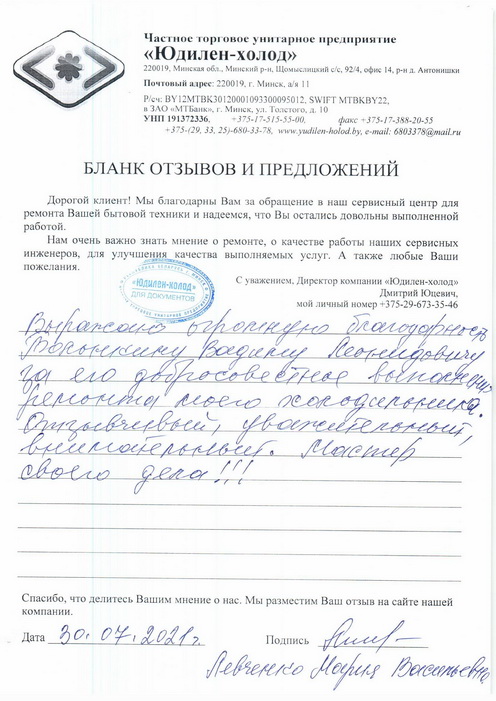 Частное торговое унитарное предприятие
«Юдилен-холод»
220019, Минская обл., Минский р-н, Щомыслицкий с/с, 92/4, офис 14, р-н д. Антонишки
Почтовый адрес: 220019, г. Минск, а/я 11
Р/сч: BY12MTBK30120001093300095012, SWIFT MTBKBY22,
в ЗАО «МТБанк», г. Минск, ул. Толстого, д. 10
УНП 191372336, +375-17-515-55-00, факс +375-17-388-20-55
+375-(29, 33, 25)-680-33-78, www.yudilen-holod.by, e-mail: 6803378@mail.ru
БЛАНК ОТЗЫВОВ И ПРЕДЛОЖЕНИЙ
Дорогой клиент! Мы благодарны Вам за обращение в наш сервисный центр для
ремонта Вашей бытовой техники и надеемся, что Вы остались довольны выполненной
работой.
Нам очень важно знать мнение о ремонте, о качестве работы наших сервисных
инженеров, для улучшения качества выполняемых услуг. А также любые Ваши
пожелания.
С уважением, Директор компании «Юдилен-холод»
Дмитрий Юцевич,
мой личный номер +375-29-673-35-46
«ЮДИЛЕН-ХОЛОД»
ДЛЯ ДОКУМЕНТОВ
Выражаю огромную благодарность
Вадиму Леонидовичу
за его добросовестное выполнение
ремонта моего холодильника.
Отзывчивый, уважительный,
внимательный. Мастер
своего дела!!!
Спасибо, что делитесь Вашим мнением о нас. Мы разместим Ваш отзыв на сайте нашей
компании.
Дата 30.07.2021г. Подпись
Левченко Мария Васильевна